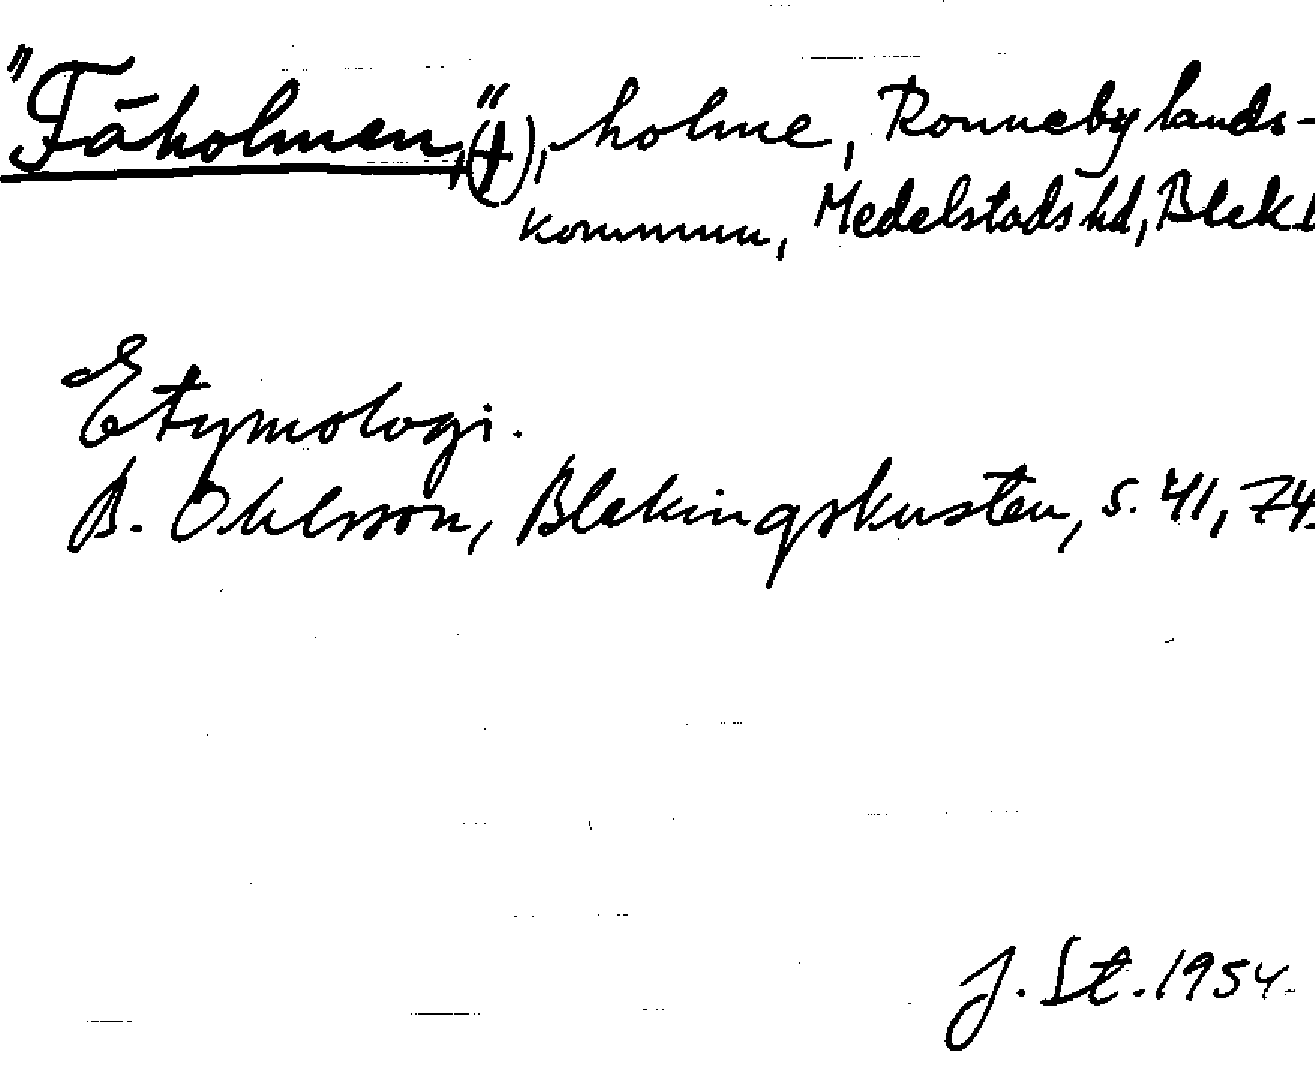 "Fäholmen", (†), holme, Ronneby lands-
kommun, Medelstads hd, Blek.
Etymologi.
B. Ohlsson, Blekingskusten, s. 41, 74.
J. St. 1954.